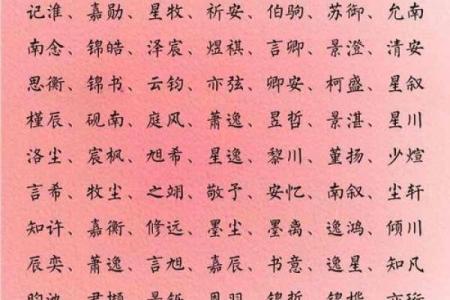 记淮、嘉勋、星牧、祈安、伯驹、苏御、允南
南念、锦皓、泽宸、煜祺、言卿、景澄、清安
思衡、锦书、云钧、亦弦、卿安、柯盛、星叙
槿辰、砚南、庭风、萧逸、昱哲、景湛、星川
洛尘、宸枫、旭希、星逸、黎川、董扬、少煊
言希、牧尘、之翊、敬予、安忆、南叙、尘轩
知许、嘉衡、修远、墨尘、墨离、逸鸿、倾川
辰奕、萧逸、言旭、嘉辰、书意、逸星、知凡